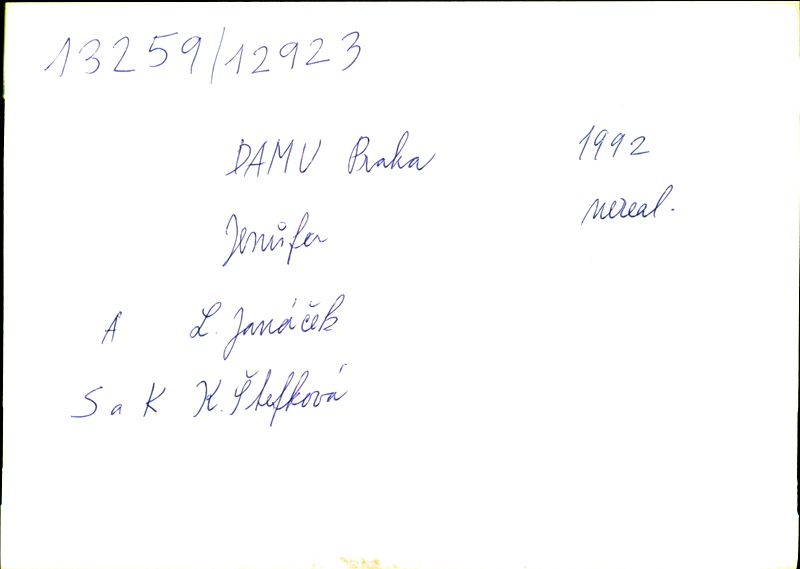 13259/12923
DAMU Praha 1992
Jenůfa nereal.
A L. Janáček
S a K K. Štefková